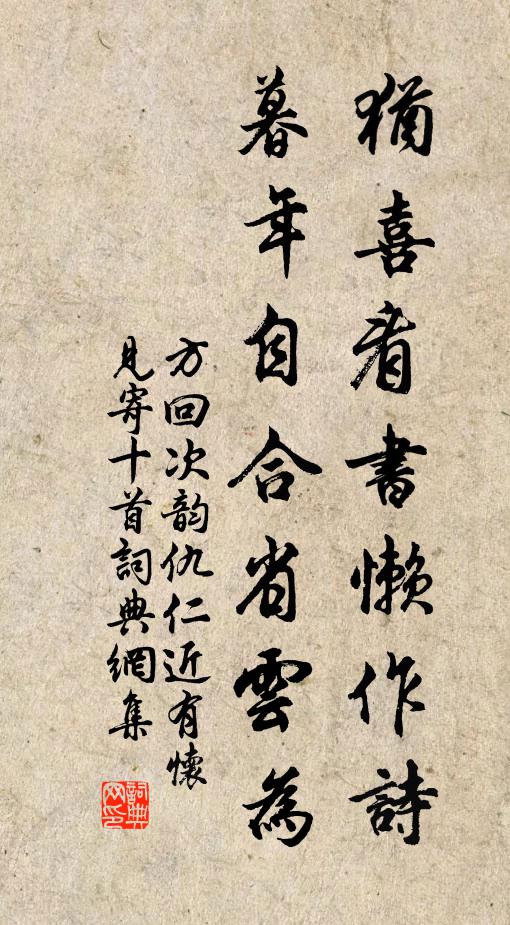 猶喜看書懶作詩
暮年自合省雲為
方回次韵仇仁近有懷
見寄十首詞典網集
詞典
网印